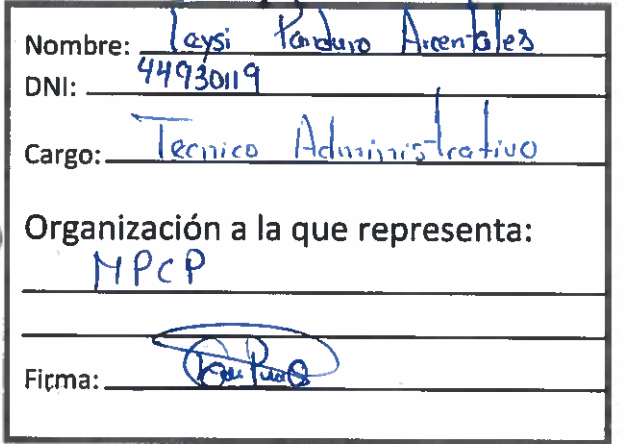 Nombre: Taysi Panduro Arentales
DNI: 44930119
Cargo: Tecnico Administrativo
Organización a la que representa:
MPCP
Firma: